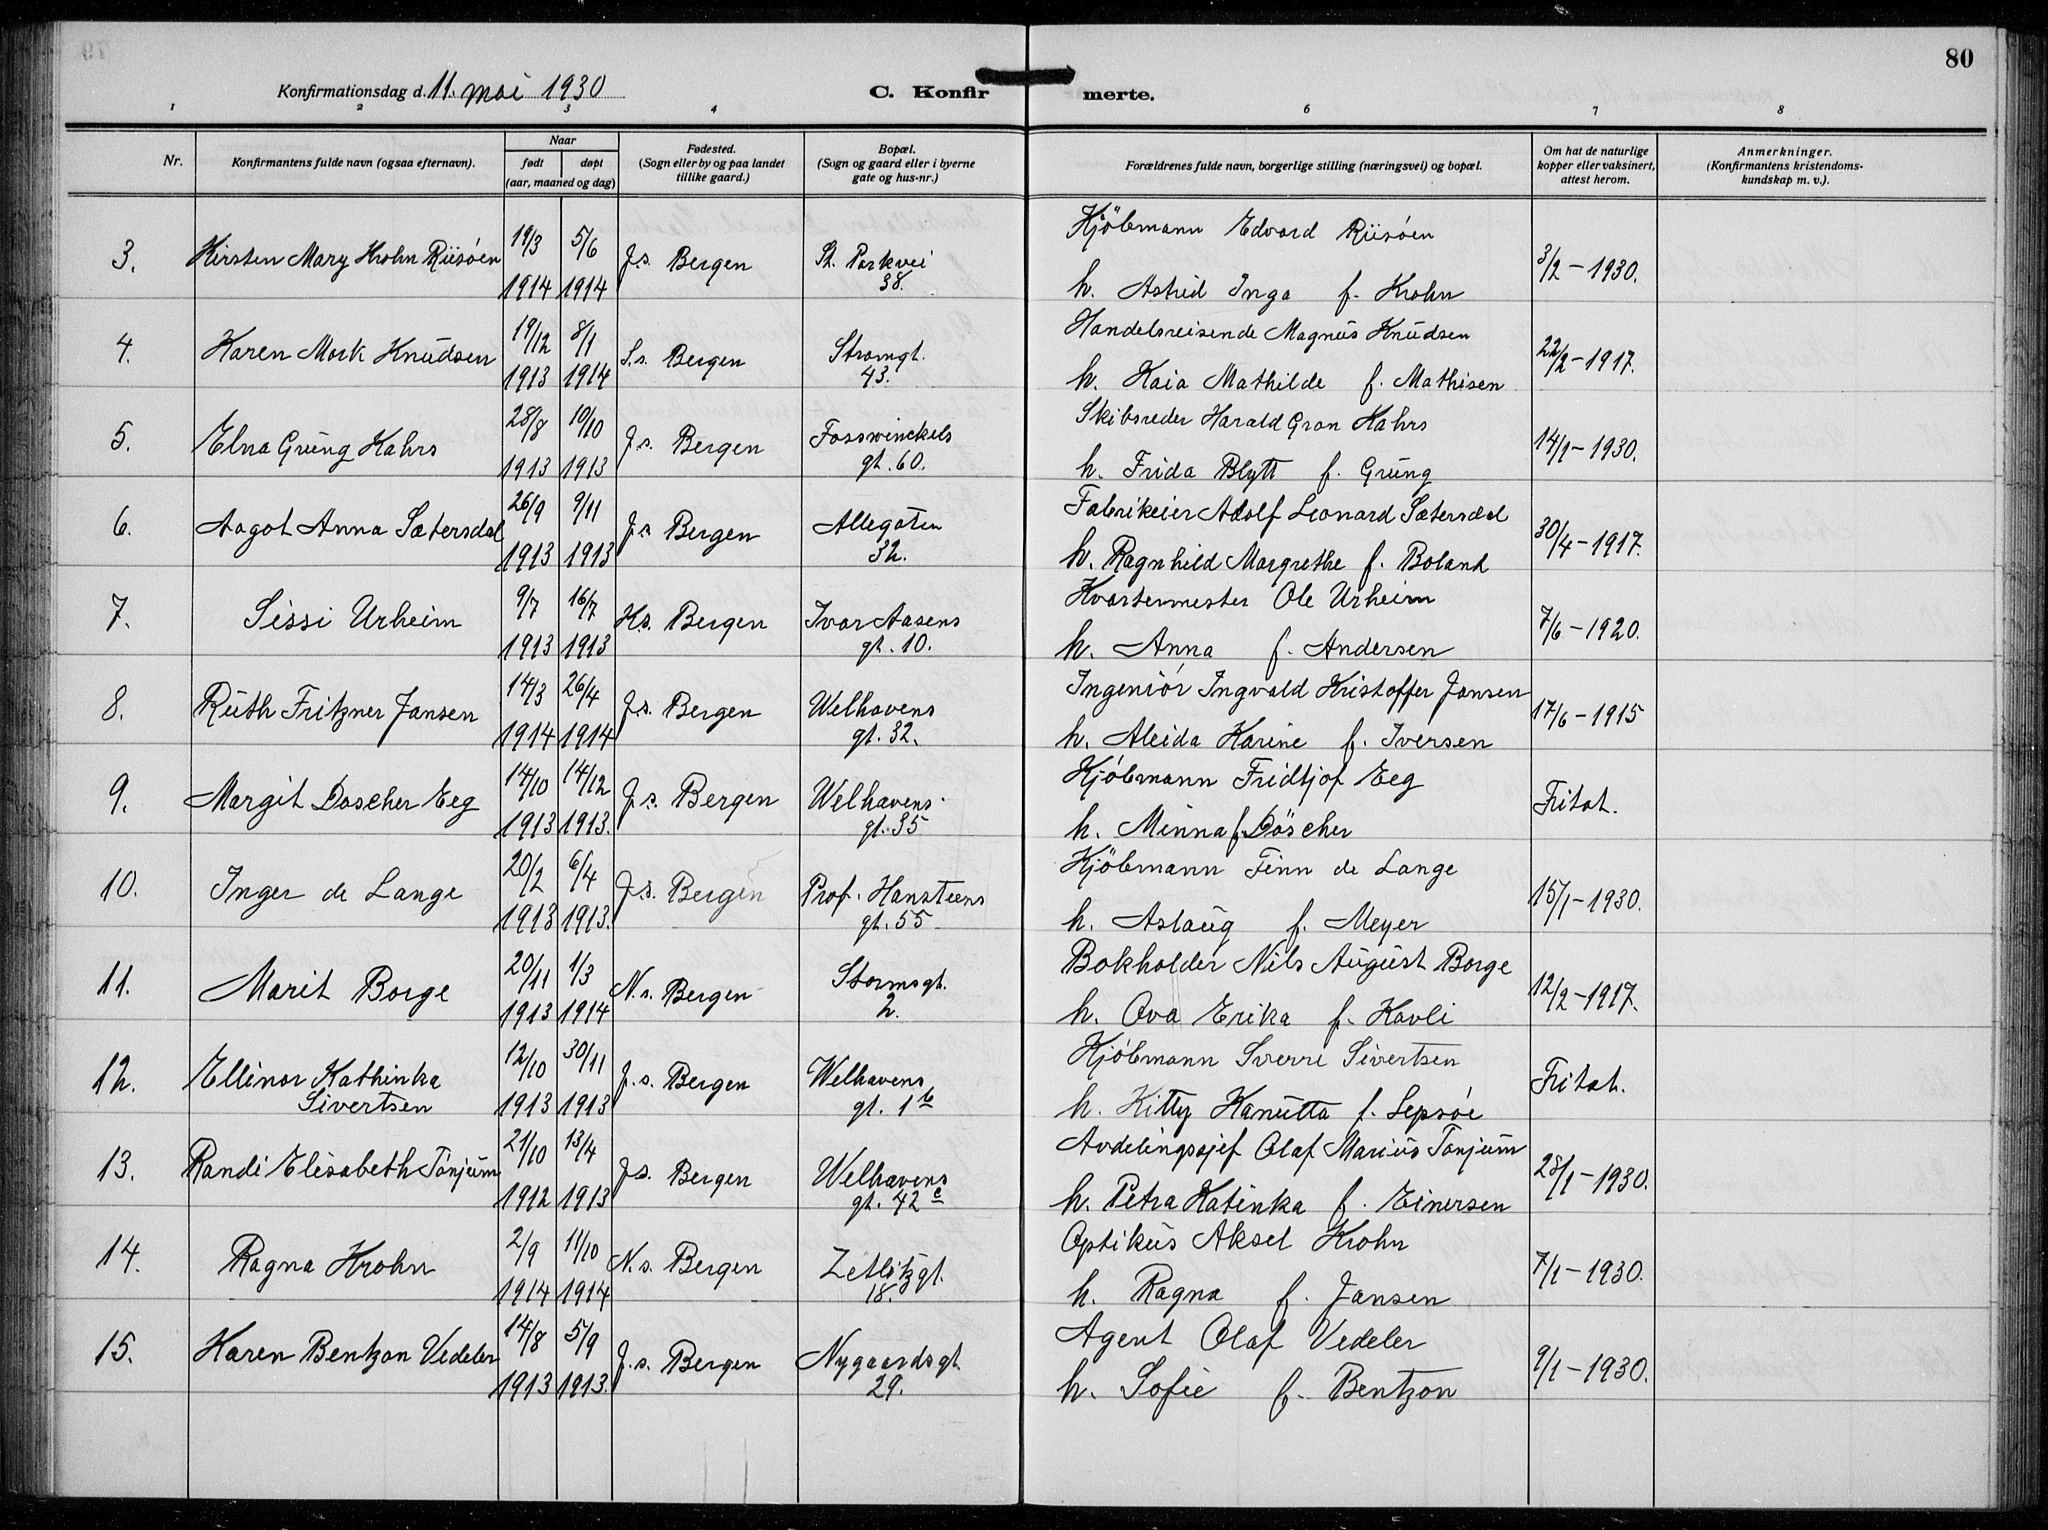 80
Konfirmationsdag d. 11. mai 1930
C. Konfir
merte.
1 2 3 4 6 7 8
Nr.
Konfirmantens fulde navn (ogsaa efternavn).
Naar
født døpt
(aar, maaned og dag)
Fødested.
(Sogn eller by og paa landet
tillike gaard.)
Bopæl.
(Sogn og gaard eller i byerne
gate og hus-nr.)
Forældrenes fulde navn, borgerlige stilling (næringsvei) og bopæl.
Om hat de naturlige
kopper eller vaksinert,
attest herom.
Anmerkninger.
(Konfirmantens kristendoms-
kundskap m. v.).
19/3 5/6 Kjöbmann Edvard Riisöen
3. Kirsten Mary Krohn Riisöen J.s. Bergen St. Parkvei 3/2-1930.
1914 1914 38. h. Astrid Inga f. Krohn
19/12 8/1 Handelsreisende Magnus Knudsen
4. Karen Mork Knudsen S.s. Bergen Stromgt. 22/2-1917.
1913 1914 43. h. Kaia Mathilde f. Mathisen
28/8 10/10 Skibsreder Harald Gran Kahrs
5. Elna Grung Kahrs J.s. Bergen Fosswinckels 14/1-1930.
1913 1913 gt. 60. h. Frida Blytt f. Grung
26/9 9/11 Fabrikeier Adolf Leonard Sætersdal
6. Aagot Anna Sætersdal J.s. Bergen Allegaten 30/4-1917.
1913 1913 32. h. Ragnhild Margrethe f. Boland
9/7 16/7 Kvartermester Ole Urheim
7. Sissi Urheim K.s. Bergen Ivar Aasens 7/6-1920.
1913 1913 gt. 10. h. Anna f. Andersen
14/3 26/4 Ingeniör Ingvald Kristoffer Jansen
8. Ruth Fritzner Jansen J.s. Bergen Welhavens 17/6-1915
1914 1914 gt. 32. h. Aleida Karine f. Iversen
14/10 14/12 Kjöbmann Fridtjof Eeg
9. Margit Doscher Eeg J.s. Bergen Welhavens Fritat.
1913 1913. gt. 35 h. Minna f. Döscher
20/2 6/4 Kjöbmann Finn de Lange
10. Inger de Lange J.s. Bergen Prof. Hansteens 15/1-1930.
1913 1913. gt. 55 h. Aslaug f. Meyer
20/11 1/3 Bokholder Nils August Borge
11. Marit Borge N.s. Bergen Stormsgt. 12/2-1917.
1913 1914 2. h. Ova Erika f. Kavli
12/10 30/11 Kjöbmann Sverre Sivertsen
12. Ellinor Kathinka J.s. Bergen Welhavens Fritat.
Sivertsen 1913 1913 gt. 1b h. Kitty Hanutta f. Lepsöe
21/10 13/4 Avdelingssjef Olaf Marius Tönjum
13. Randi Elisabeth Tönjum J.s. Bergen Welhavens 28/1-1930.
1912 1913 gt. 42c h. Petra Katinka f. Einersen
2/9 11/10 Optikus Aksel Krohn
14. Ragna Krohn N.s. Bergen Zetlitzgt. 7/1-1930.
1914 1914 18. h. Ragna f. Jansen
14/8 5/9 Agent Olaf Vedeler
15. Karen Bentzon Vedeler J.s. Bergen Nygaardsgt. 9/1-1930.
1913 1913. 29. h. Sofie f. Bentzon